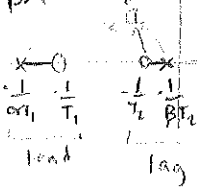 1/αT₁ 1/T₁ 1/T₂ 1/βT₂
lead lag